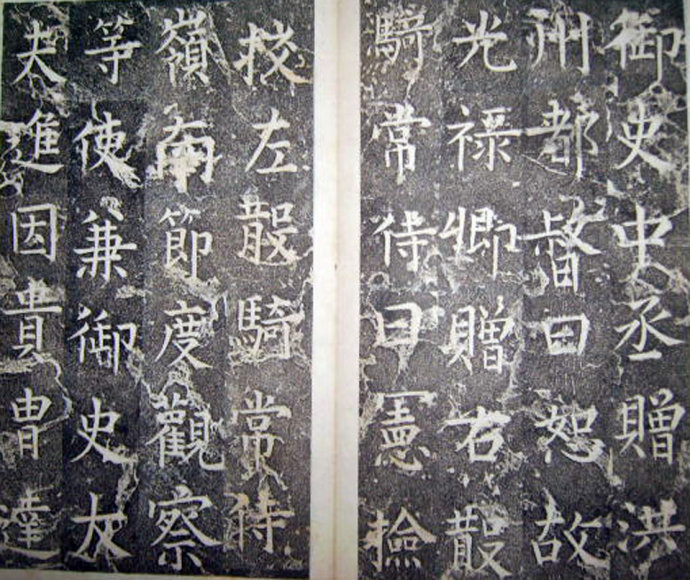 御史中丞贈洪
州都督曰恕故
光祿卿贈右散
騎常侍曰憲撿
挍左散騎常侍
嶺南節度觀察
等使兼御史大
夫進因貴胄達